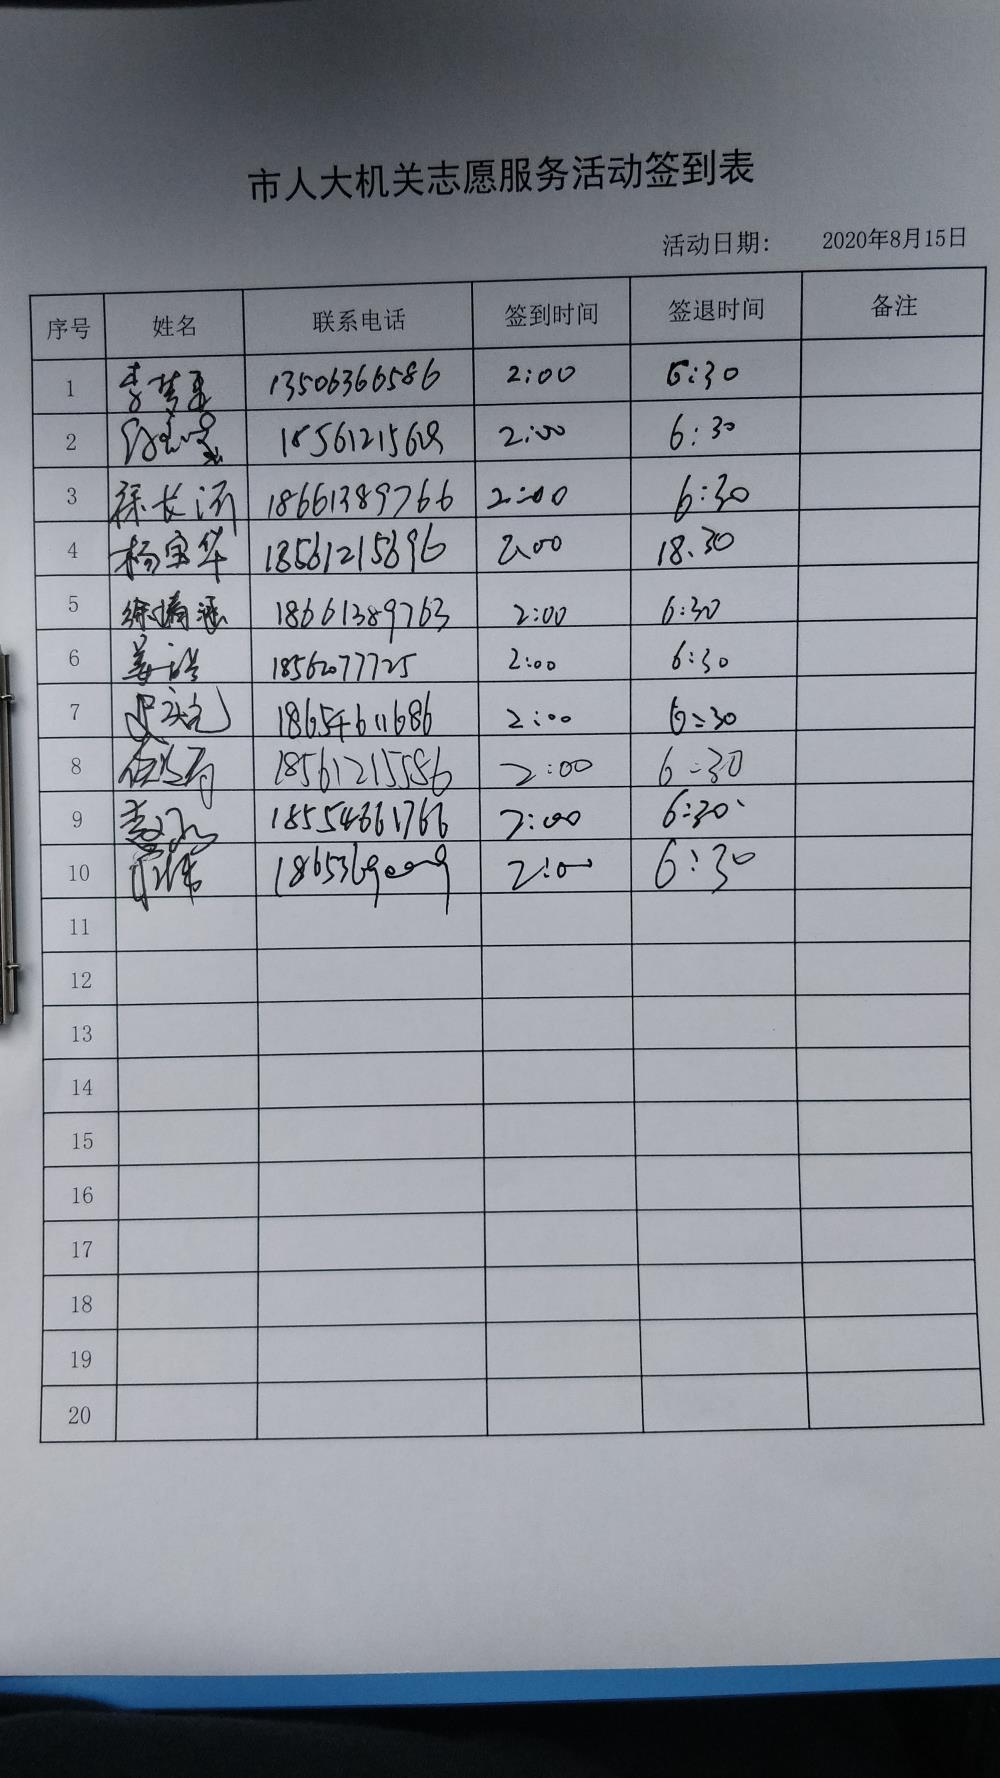 市人大机关志愿服务活动签到表
活动日期: 2020年8月15日
序号 姓名 联系电话 签到时间 签退时间 备注
1 李梦玉 13506366586 2:00 6:30
2 2:00 6:30
3 徐长河 18661389766 2:00 6:30
4 杨宝华 18561215696 2:00 18.30
5 18661389763 2:00 6:30
6 姜洪 18562077725 2:00 6:30
7 18654611686 2:00 6:30
8 18561215586 2:00 6:30
9 18554661766 2:00 6:30
10 2:00 6:30
11
12
13
14
15
16
17
18
19
20